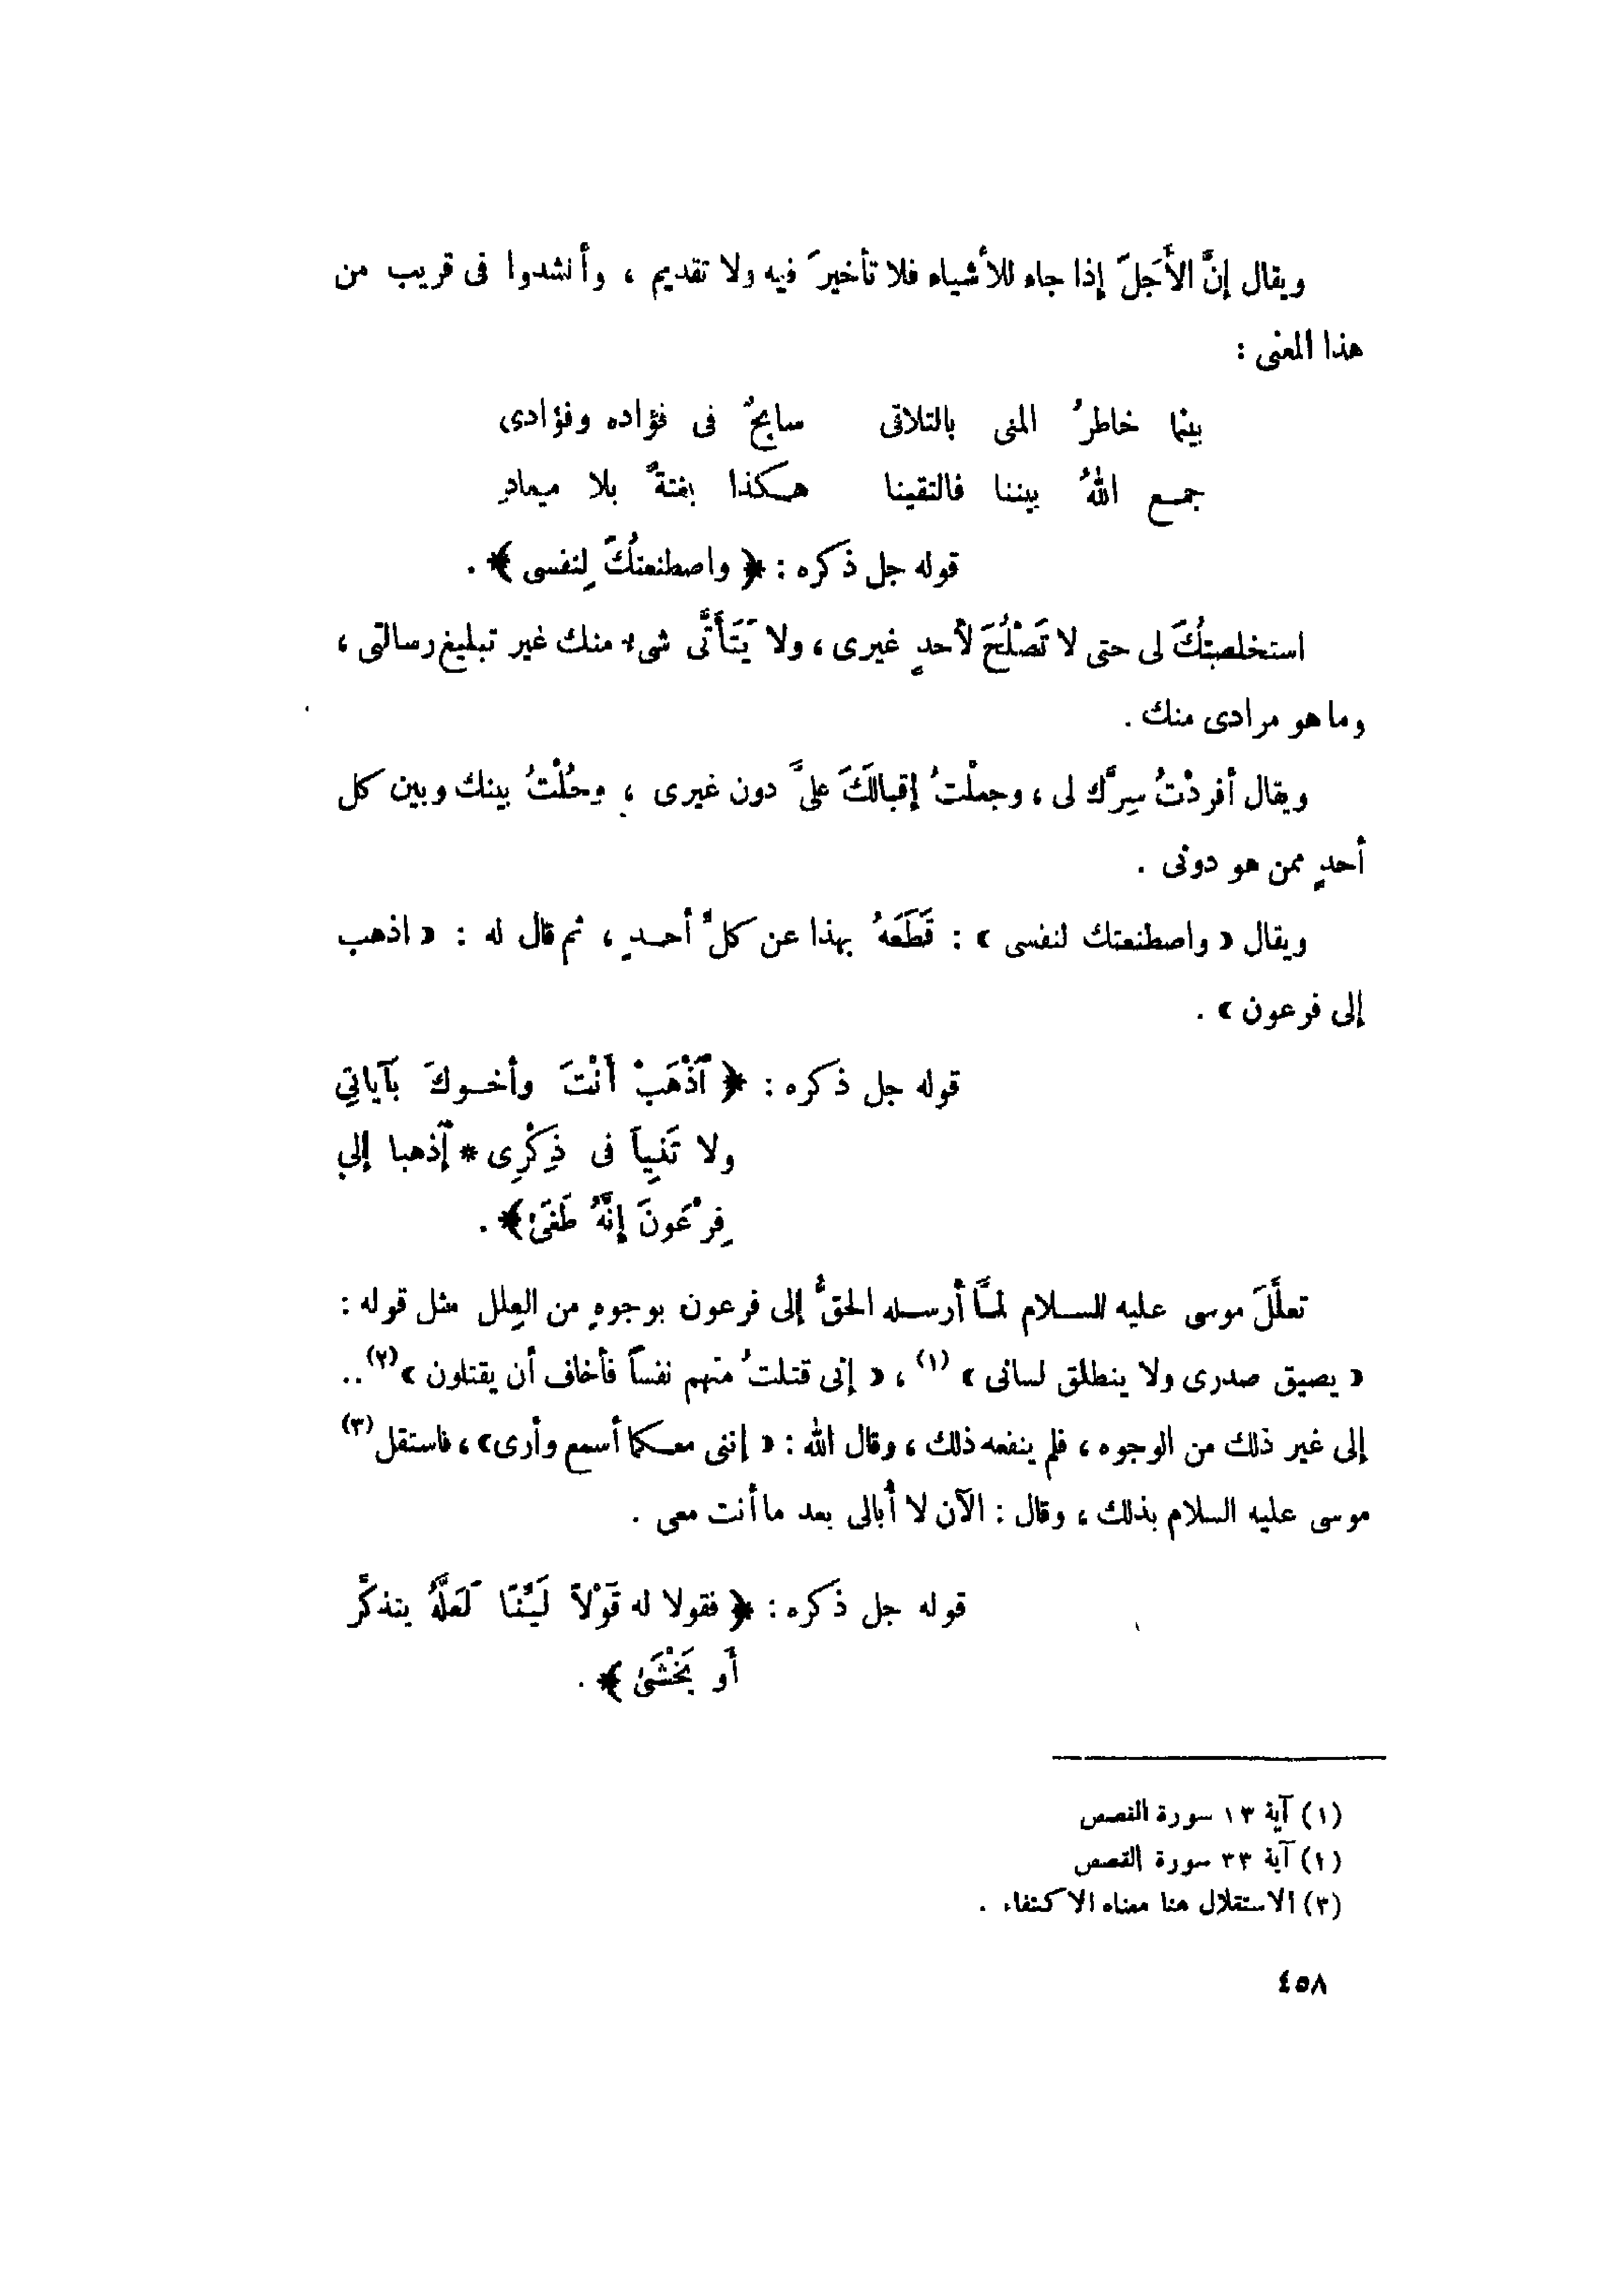 ويقال إنَّ الأَجَلَ إذا جاء للأشياء فلا تأخيرَ فيه ولا تقديم ، وأنشدوا فى قريب من
هذا المعنى :
بينما خاطرُ المنى بالتلاقى سابحٌ فى فؤاده وفؤادى
جمع اللهُ بيننا فالتقينا هكذا بغتةً بلا ميعادِ
قوله جل ذكره : ﴿ واصطنعتُكَ لِنفسى ﴾ .
استخلصتُكَ لى حتى لا تَصْلُحَ لأحدٍ غيرى ، ولا يَتَأَتَّى شىء منك غير تبليغ رسالتى ،
وما هو مرادى منك .
ويقال أفردْتُ سِرَّك لى ، وجعلْتُ إقبالَكَ علىَّ دون غيرى ، وحُلْتُ بينك وبين كل
أحدٍ ممن هو دونى .
ويقال « واصطنعتك لنفسى » : قَطَعَهُ بهذا عن كلِّ أحدٍ ، ثم قال له : « اذهب
إلى فرعون » .
قوله جل ذكره : ﴿ ٱذْهَبْ أَنْتَ وأخوكَ بآياتِى
ولا تَنِيا فى ذِكْرِى * ٱذهبا إلى
فِرْعَونَ إنَّهُ طَغَىٰ ﴾ .
تعلَّلَ موسى عليه السلام لمَّا أرسله الحقُّ إلى فرعون بوجوهٍ من العِلل مثل قوله :
« يضيق صدرى ولا ينطلق لسانى » (١) ، « إنى قتلتُ منهم نفساً فأخاف أن يقتلون » (٢) ..
إلى غير ذلك من الوجوه ، فلم ينفعه ذلك ، وقال الله : « إننى معكما أسمع وأرى » ، فاستقل (٣)
موسى عليه السلام بذلك ، وقال : الآن لا أُبالى بعد ما أنت معى .
قوله جل ذكره : ﴿ فقولا له قَوْلاً لَيِّنًا لَعَلَّهُ يتذكَّر
أَو يَخْشَىٰ ﴾ .
(١) آية ١٣ سورة القصص
(٢) آية ٣٣ سورة القصص
(٣) الاستقلال هنا معناه الاكتفاء .
٤٥٨